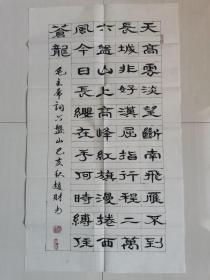 天高雲淡望斷南飛雁不到
長城非好漢屈指行程二萬
六盤山上高峰紅旗漫捲西
風今日長纓在手何時縛住
蒼龍
毛主席詞六盤山己亥秋趙財书